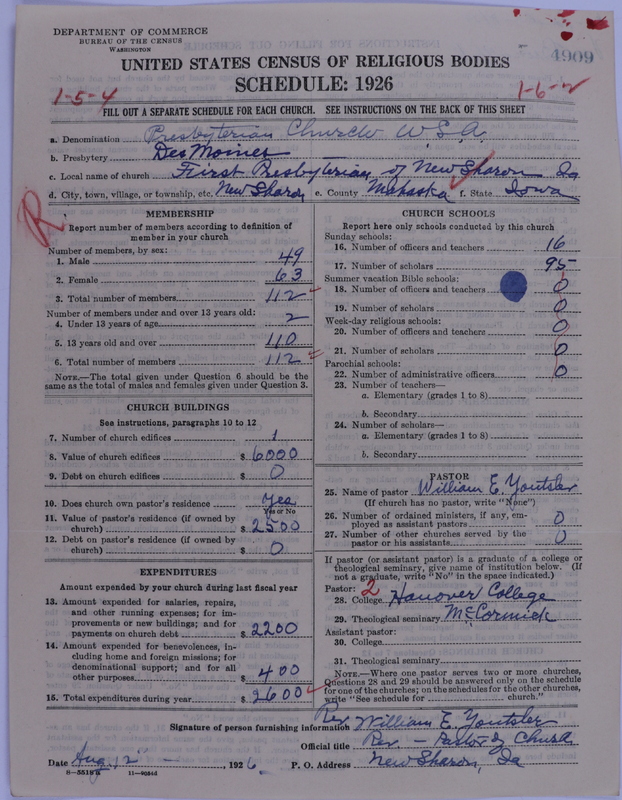 DEPARTMENT OF COMMERCE
BUREAU OF THE CENSUS
WASHINGTON
4909
UNITED STATES CENSUS OF RELIGIOUS BODIES
SCHEDULE: 1926
1-5-4
1-6-2
FILL OUT A SEPARATE SCHEDULE FOR EACH CHURCH. SEE INSTRUCTIONS ON THE BACK OF THIS SHEET
a. Denomination Presbyterian Church U.S.A.
b. Presbytery Des Moines
c. Local name of church First Presbyterian of New Sharon Ia
d. City, town, village, or township, etc. New Sharon e. County Mahaska f. State Iowa
R
MEMBERSHIP
Report number of members according to definition of
member in your church
Number of members, by sex:
1. Male 49
2. Female 63
3. Total number of members 112
Number of members under and over 13 years old:
4. Under 13 years of age 2
5. 13 years old and over 110
6. Total number of members 112
NOTE.—The total given under Question 6 should be the
same as the total of males and females given under Question 3.
CHURCH BUILDINGS
See instructions, paragraphs 10 to 12
7. Number of church edifices 1
8. Value of church edifices $ 6000
9. Debt on church edifices $ 0
10. Does church own pastor's residence yes
Yes or No
11. Value of pastor's residence (if owned by
church) $ 2500
12. Debt on pastor's residence (if owned by
church) $ 0
EXPENDITURES
Amount expended by your church during last fiscal year
13. Amount expended for salaries, repairs,
and other running expenses; for im-
provements or new buildings; and for
payments on church debt $ 2200
14. Amount expended for benevolences, in-
cluding home and foreign missions; for
denominational support; and for all
other purposes $ 400
15. Total expenditures during year $ 2600
CHURCH SCHOOLS
Report here only schools conducted by this church
Sunday schools:
16. Number of officers and teachers 16
17. Number of scholars 95
Summer vacation Bible schools:
18. Number of officers and teachers 0
19. Number of scholars 0
Week-day religious schools:
20. Number of officers and teachers 0
21. Number of scholars 0
Parochial schools:
22. Number of administrative officers 0
23. Number of teachers—
a. Elementary (grades 1 to 8)
b. Secondary
24. Number of scholars—
a. Elementary (grades 1 to 8)
b. Secondary
PASTOR
25. Name of pastor William E. Youtsler
(If church has no pastor, write "None")
26. Number of ordained ministers, if any, em-
ployed as assistant pastors 0
27. Number of other churches served by the
pastor or his assistants 0
If pastor (or assistant pastor) is a graduate of a college or
theological seminary, give name of institution below. (If
not a graduate, write "No" in the space indicated.)
Pastor: 2
28. College Hanover College
29. Theological seminary McCormick
Assistant pastor:
30. College
31. Theological seminary
NOTE.—Where one pastor serves two or more churches,
Questions 28 and 29 should be answered only on the schedule
for one of the churches; on the schedules for the other churches,
write "See schedule for church."
Signature of person furnishing information Rev William E. Youtsler
Official title Rev - Pastor of Church
Date Aug 12 - , 1926 P. O. Address New Sharon, Ia
8-5518a 11-9024d